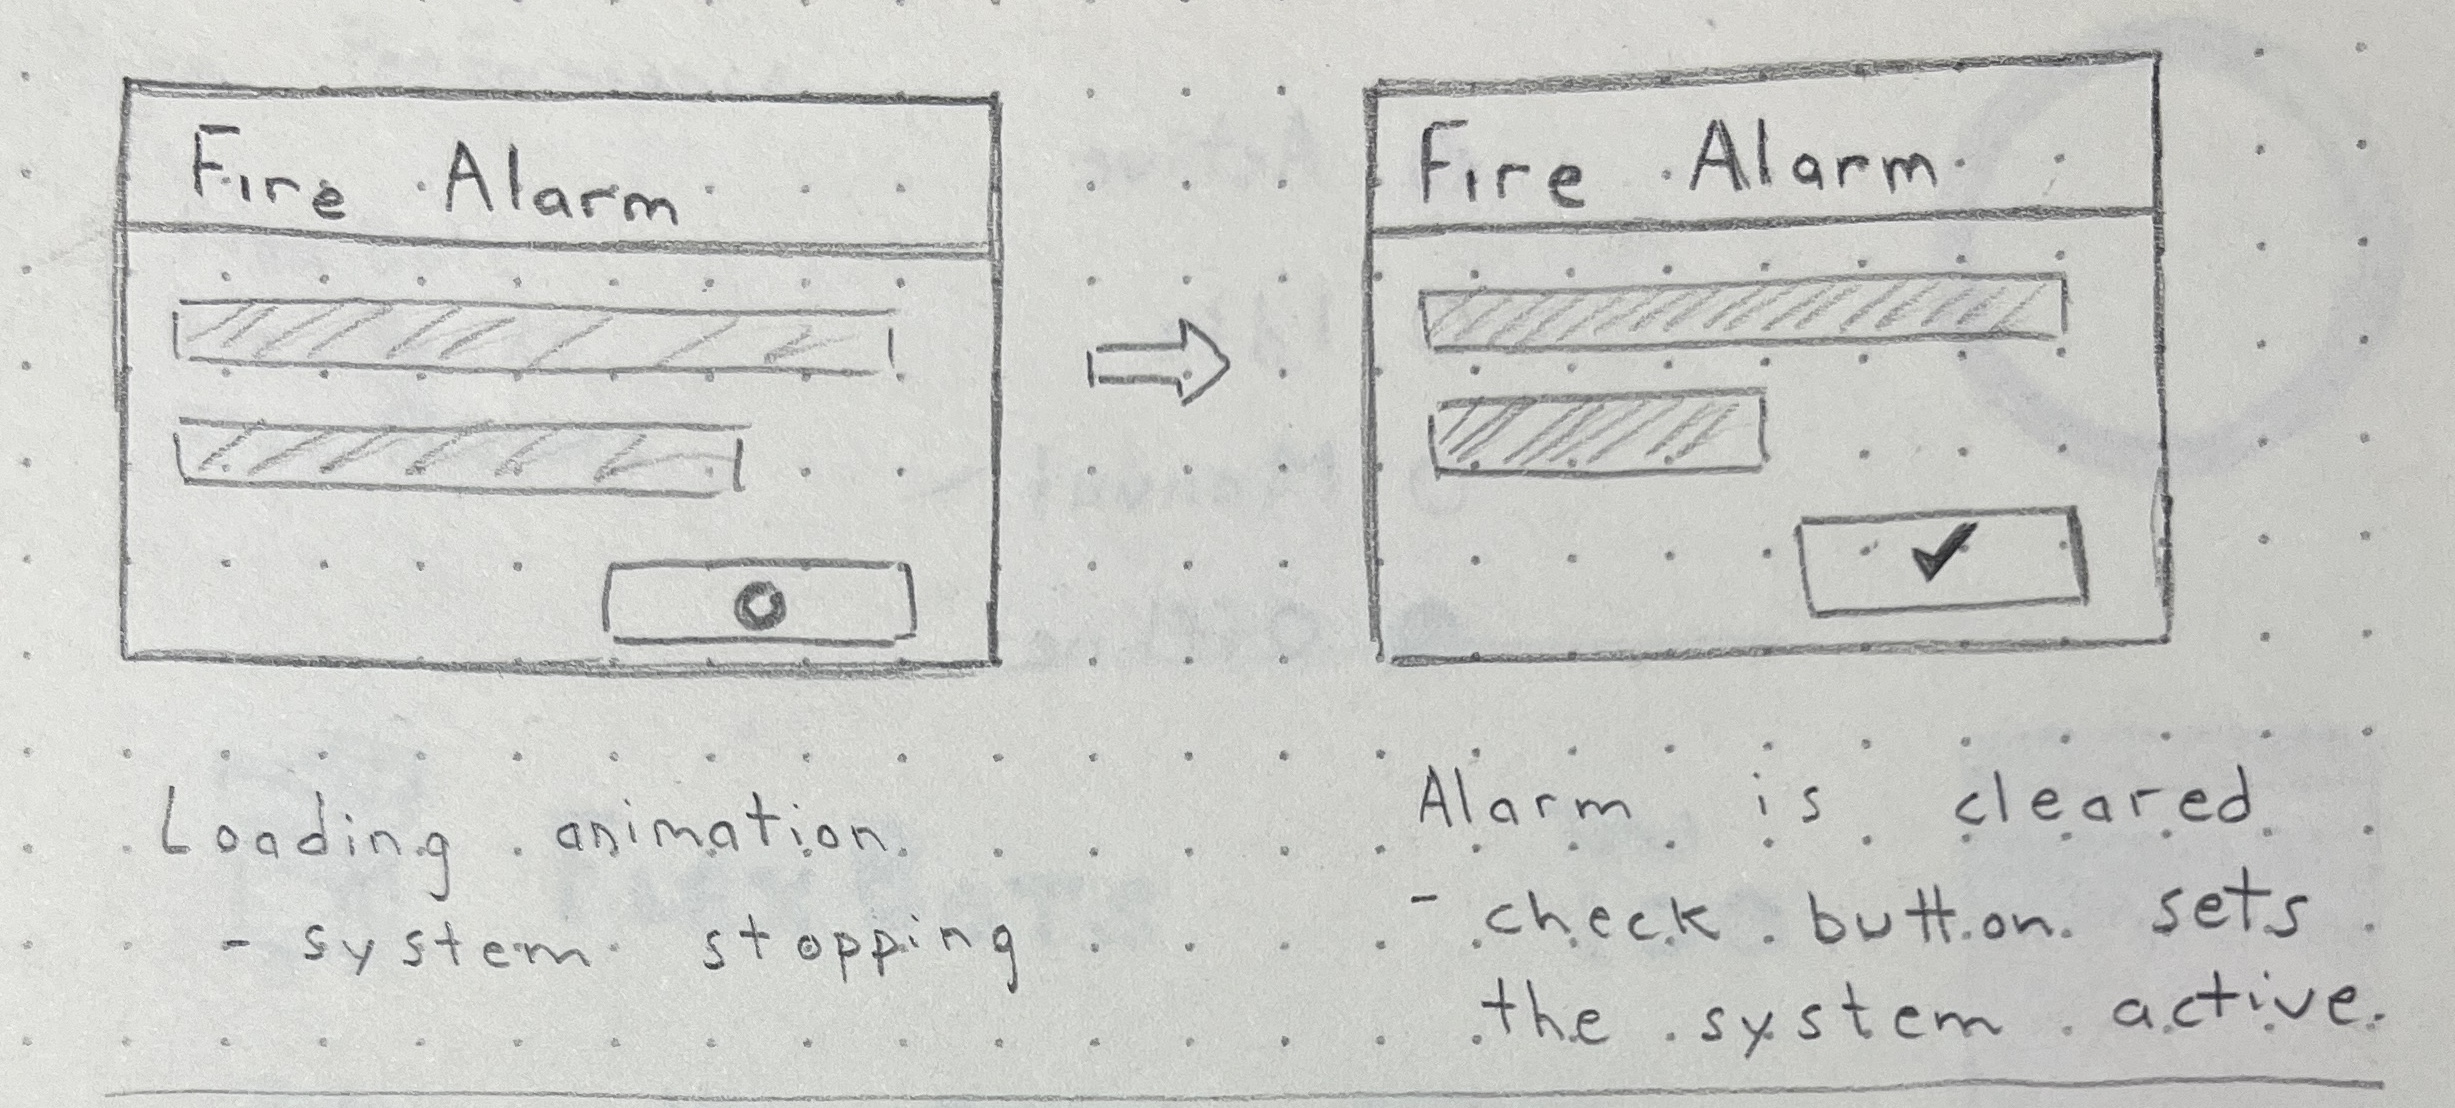 Fire Alarm
Fire Alarm
Loading animation
- system stopping
Alarm is cleared
- check button sets
the system active.